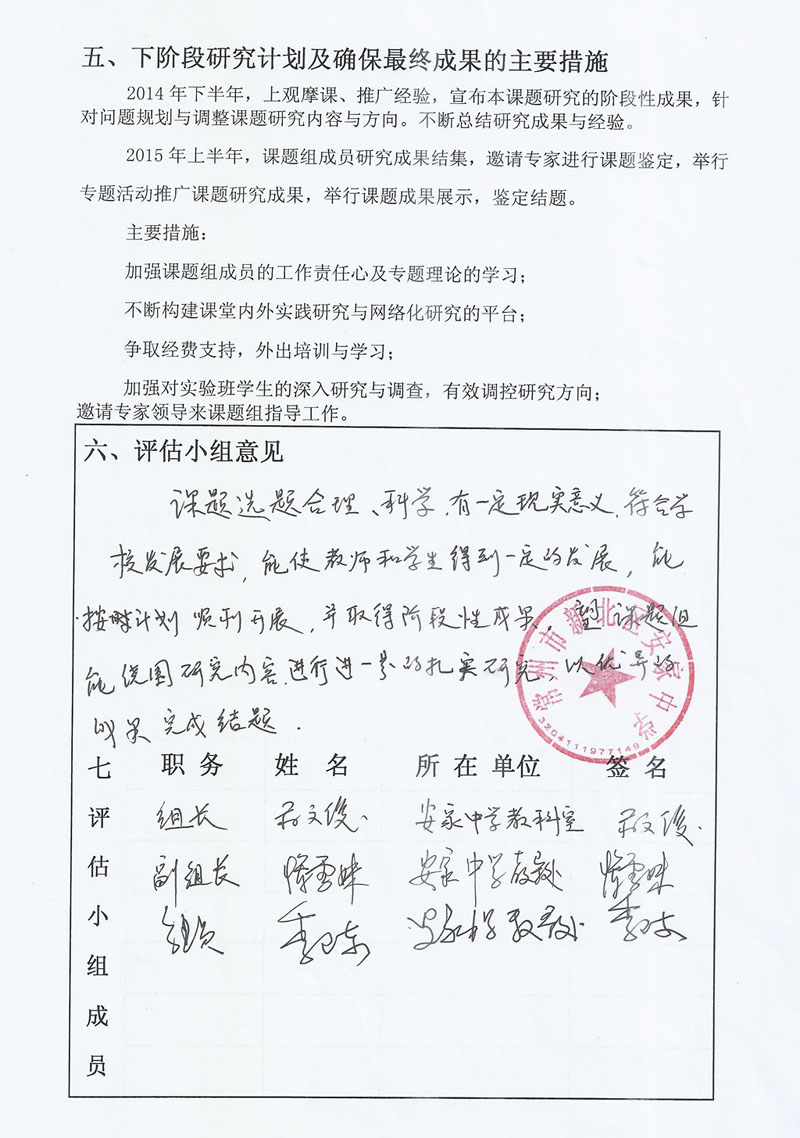 五、下阶段研究计划及确保最终成果的主要措施
2014年下半年，上观摩课、推广经验，宣布本课题研究的阶段性成果，针
对问题规划与调整课题研究内容与方向。不断总结研究成果与经验。
2015年上半年，课题组成员研究成果结集，邀请专家进行课题鉴定，举行
专题活动推广课题研究成果，举行课题成果展示，鉴定结题。
主要措施：
加强课题组成员的工作责任心及专题理论的学习；
不断构建课堂内外实践研究与网络化研究的平台；
争取经费支持，外出培训与学习；
加强对实验班学生的深入研究与调查，有效调控研究方向；
邀请专家领导来课题组指导工作。
六、评估小组意见
课题选题合理、科学，有一定现实意义，符合学
校发展要求，能使教师和学生得到一定的发展，能
按时计划顺利开展，并取得阶段性成果，望课题组
能绕围研究内容，进行进一步的扎实研究，以优异的
成果完成结题．
常州市新北区安家中学
3204111977149
七评估小组成员
职务 姓名 所在单位 签名
组长 文俊 安家中学教科室 文俊
副组长 安家中学教导处
组员 季卫东 安家中学教导处 季卫东